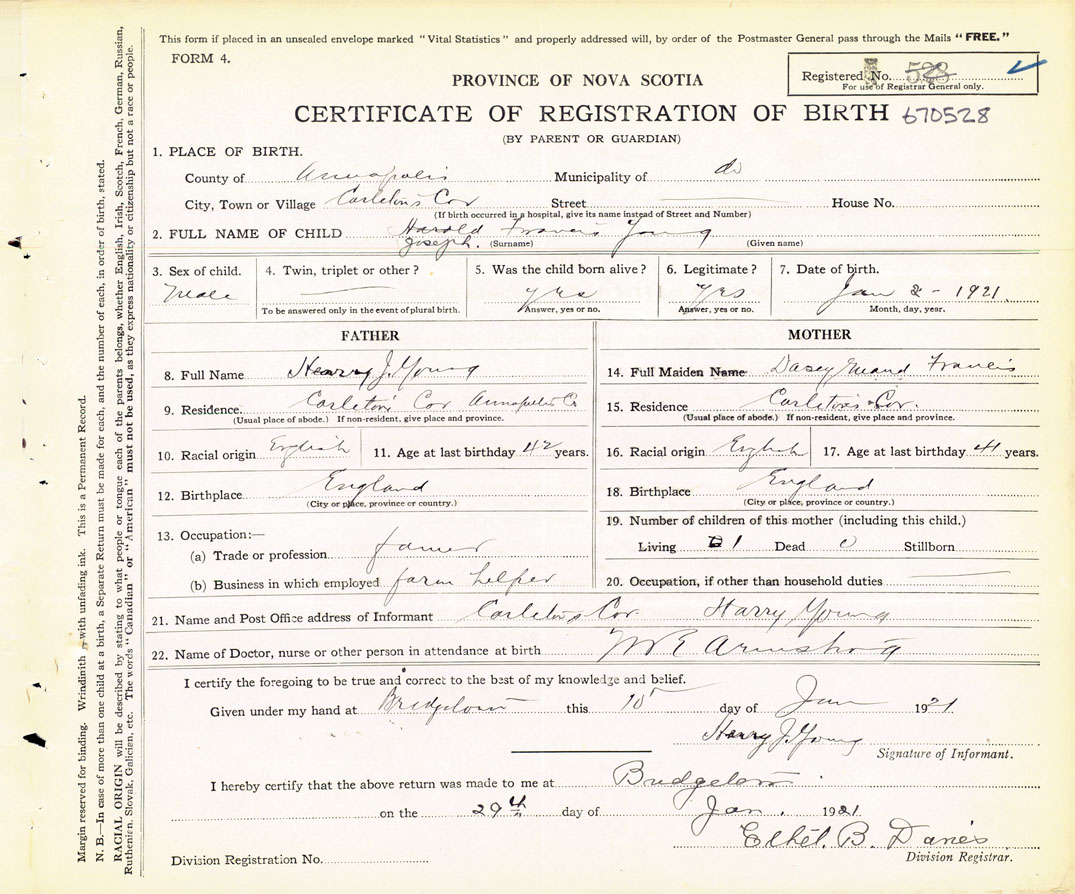 This form if placed in an unsealed envelope marked "Vital Statistics" and properly addressed will, by order of the Postmaster General pass through the Mails "FREE."
FORM 4.
Registered No. 528
For use of Registrar General only.
PROVINCE OF NOVA SCOTIA
CERTIFICATE OF REGISTRATION OF BIRTH 670528
(BY PARENT OR GUARDIAN)
1. PLACE OF BIRTH.
County of Annapolis Municipality of do
City, Town or Village Carleton's Cor Street House No.
(If birth occurred in a hospital, give its name instead of Street and Number)
2. FULL NAME OF CHILD Harold Francis Young
Joseph. (Surname) (Given name)
3. Sex of child. 4. Twin, triplet or other? 5. Was the child born alive? 6. Legitimate? 7. Date of birth.
Male yes yes Jan 2 - 1921
To be answered only in the event of plural birth. Answer, yes or no. Answer, yes or no. Month, day, year.
FATHER
8. Full Name Harry J. Young
9. Residence. Carleton's Cor Annapolis Co
(Usual place of abode.) If non-resident, give place and province.
10. Racial origin English 11. Age at last birthday 42 years.
12. Birthplace England
(City or place, province or country.)
13. Occupation:—
(a) Trade or profession farmer
(b) Business in which employed farm helper
MOTHER
14. Full Maiden Name Dasey Maud Francis
15. Residence Carleton's Cor.
(Usual place of abode.) If non-resident, give place and province.
16. Racial origin English 17. Age at last birthday 41 years.
18. Birthplace England
(City or place, province or country.)
19. Number of children of this mother (including this child.)
Living 1 Dead 0 Stillborn
20. Occupation, if other than household duties
21. Name and Post Office address of Informant Carleton's Cor. Harry Young
22. Name of Doctor, nurse or other person in attendance at birth Armstrong
I certify the foregoing to be true and correct to the best of my knowledge and belief.
Given under my hand at Bridgetown this 10 day of Jan 1921
Harry J. Young
Signature of Informant.
I hereby certify that the above return was made to me at Bridgetown
on the 29th day of Jan. 1921.
Ethel. B. Danies
Division Registrar.
Division Registration No.
Margin reserved for binding. Wrindinith with unfading ink. This is a Permanent Record.
N. B.—In case of more than one child at a birth, a Separate Return must be made for each, and the number of each, in order of birth, stated.
RACIAL ORIGIN will be described by stating to what people or tongue each of the parents belongs, whether English, Irish, Scotch, French, German, Russian,
Ruthenian, Slovak, Galician, etc. The words "Canadian" or "American" must not be used, as they express nationality or citizenship but not a race or people.